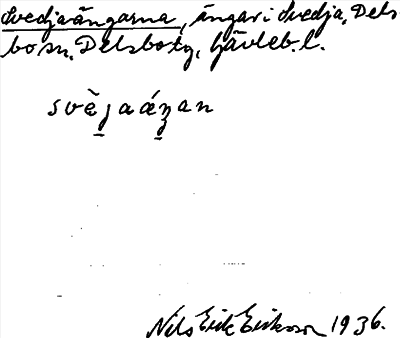 Svedjaängarna, ängar i Svedja, Dels
bo sn, Delsbo tg, Gävleb. l.
svè̱jaáŋ̱an
Nils Erik Erikson 1936.